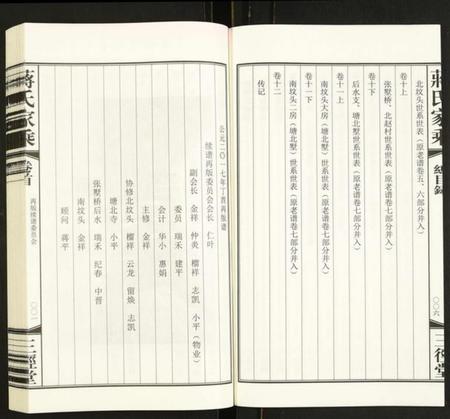 蔣氏家乘
總目錄
〇〇六
三徑堂
北坟头世系世表（原老谱卷五、六部分并入）
卷十上
张墅桥、北赵村世系世表（原老谱卷七部分并入）
卷十下
后水支、塘北墅世系世表（原老谱卷七部分并入）
卷十一上
南坟头大房（塘北墅）世系世表（原老谱卷七部分并入）
卷十一下
南坟头二房（塘北墅）世系世表（原老谱卷七部分并入）
卷十二
传记
公元二〇一七年丁酉再版谱
续谱再版委员会会长 仁叶
副会长 金祥 仲炎 榴祥 志凯 小平（物业）
委员 瑞禾 建平
会计 华小 惠娟
主修 金祥
协修北坟头 榴祥 云龙 留焕 志凯
塘北寺 小平
张墅桥后水 瑞禾 纪春 中晋
南坟头 金祥
顾问 蒋平
蔣氏家乘
卷首
再版续谱委员会
〇〇一
三徑堂